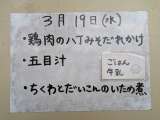 3月19日(水)
・鶏肉の八丁みそだれかけ
・五目汁
ごはん
牛乳
・ちくわとだいこんのいため煮